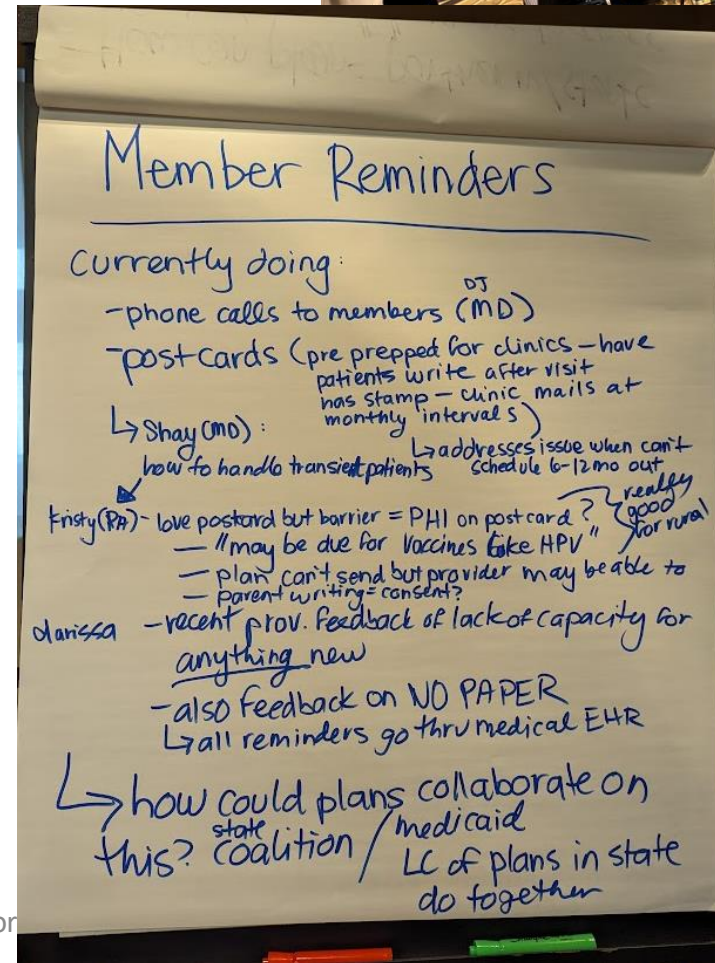 Member Reminders
currently doing:
DJ
-phone calls to members (MD)
-postcards (pre prepped for clinics - have
patients write after visit
has stamp - clinic mails at
monthly intervals)
↳ addresses issue when can't
schedule 6-12mo out
↳ Shay (MO):
how to handle transient patients
Kristy (PA) - love postcard but barrier = PHI on postcard?
really
good
for rural
- "may be due for vaccines like HPV"
- plan can't send but provider may be able to
- parent writing = consent?
clarissa - recent prov. feedback of lack of capacity for
anything new
- also feedback on NO PAPER
↳ all reminders go thru medical EHR
↳ how could plans collaborate on
this? state coalition / medicaid
LC of plans in state
do together
or